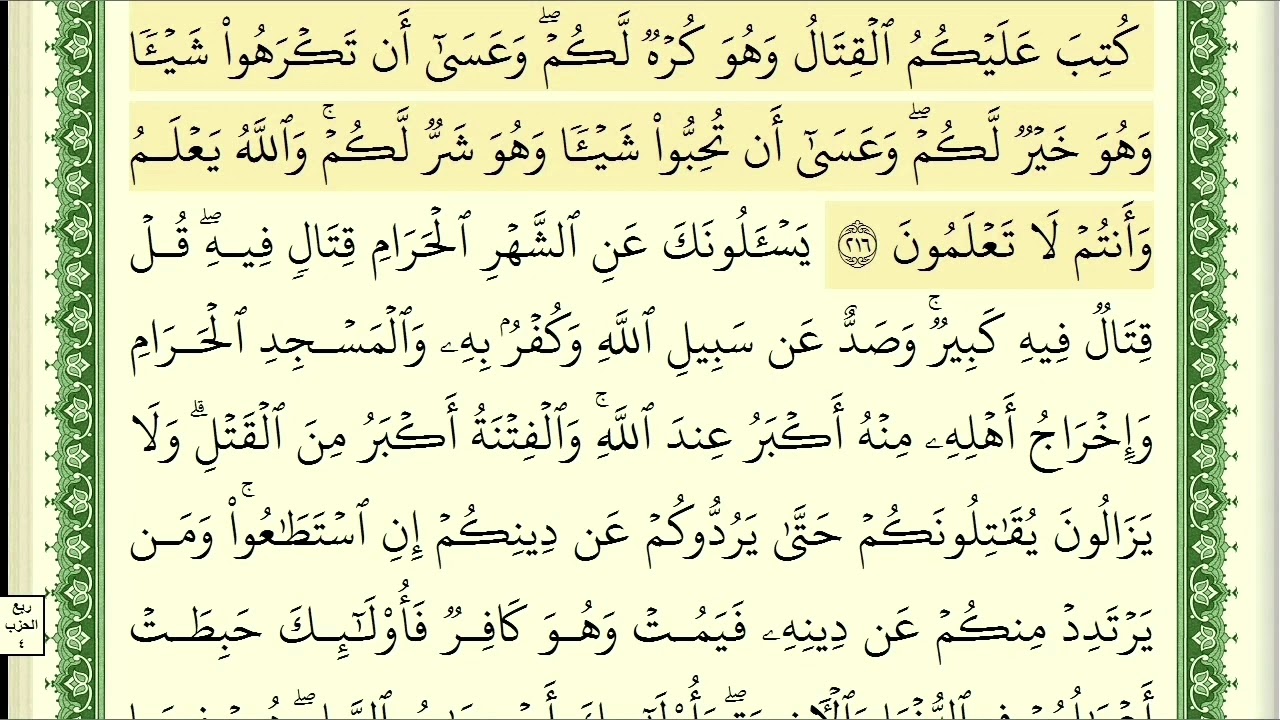 كُتِبَ عَلَيْكُمُ ٱلْقِتَالُ وَهُوَ كُرْهٌ لَّكُمْ ۖ وَعَسَىٰٓ أَن تَكْرَهُوا۟ شَيْـًٔا
وَهُوَ خَيْرٌ لَّكُمْ ۖ وَعَسَىٰٓ أَن تُحِبُّوا۟ شَيْـًٔا وَهُوَ شَرٌّ لَّكُمْ ۚ وَٱللَّهُ يَعْلَمُ
وَأَنتُمْ لَا تَعْلَمُونَ ٢١٦ يَسْـَٔلُونَكَ عَنِ ٱلشَّهْرِ ٱلْحَرَامِ قِتَالٍ فِيهِ ۖ قُلْ
قِتَالٌ فِيهِ كَبِيرٌ ۚ وَصَدٌّ عَن سَبِيلِ ٱللَّهِ وَكُفْرٌۢ بِهِۦ وَٱلْمَسْجِدِ ٱلْحَرَامِ
وَإِخْرَاجُ أَهْلِهِۦ مِنْهُ أَكْبَرُ عِندَ ٱللَّهِ ۚ وَٱلْفِتْنَةُ أَكْبَرُ مِنَ ٱلْقَتْلِ ۗ وَلَا
يَزَالُونَ يُقَـٰتِلُونَكُمْ حَتَّىٰ يَرُدُّوكُمْ عَن دِينِكُمْ إِنِ ٱسْتَطَـٰعُوا۟ ۚ وَمَن
يَرْتَدِدْ مِنكُمْ عَن دِينِهِۦ فَيَمُتْ وَهُوَ كَافِرٌ فَأُو۟لَـٰٓئِكَ حَبِطَتْ
ربع
الحزب
٤